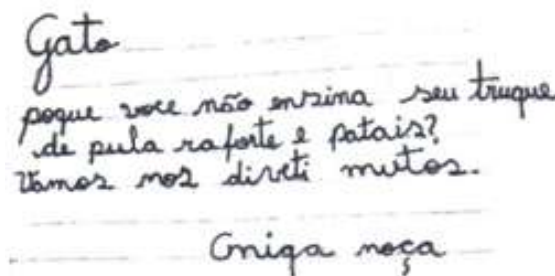 Gato
poque voce não ensina seu truque
de pula raforte e patais?
Vamos nos diveti mutos.
Gniga noça